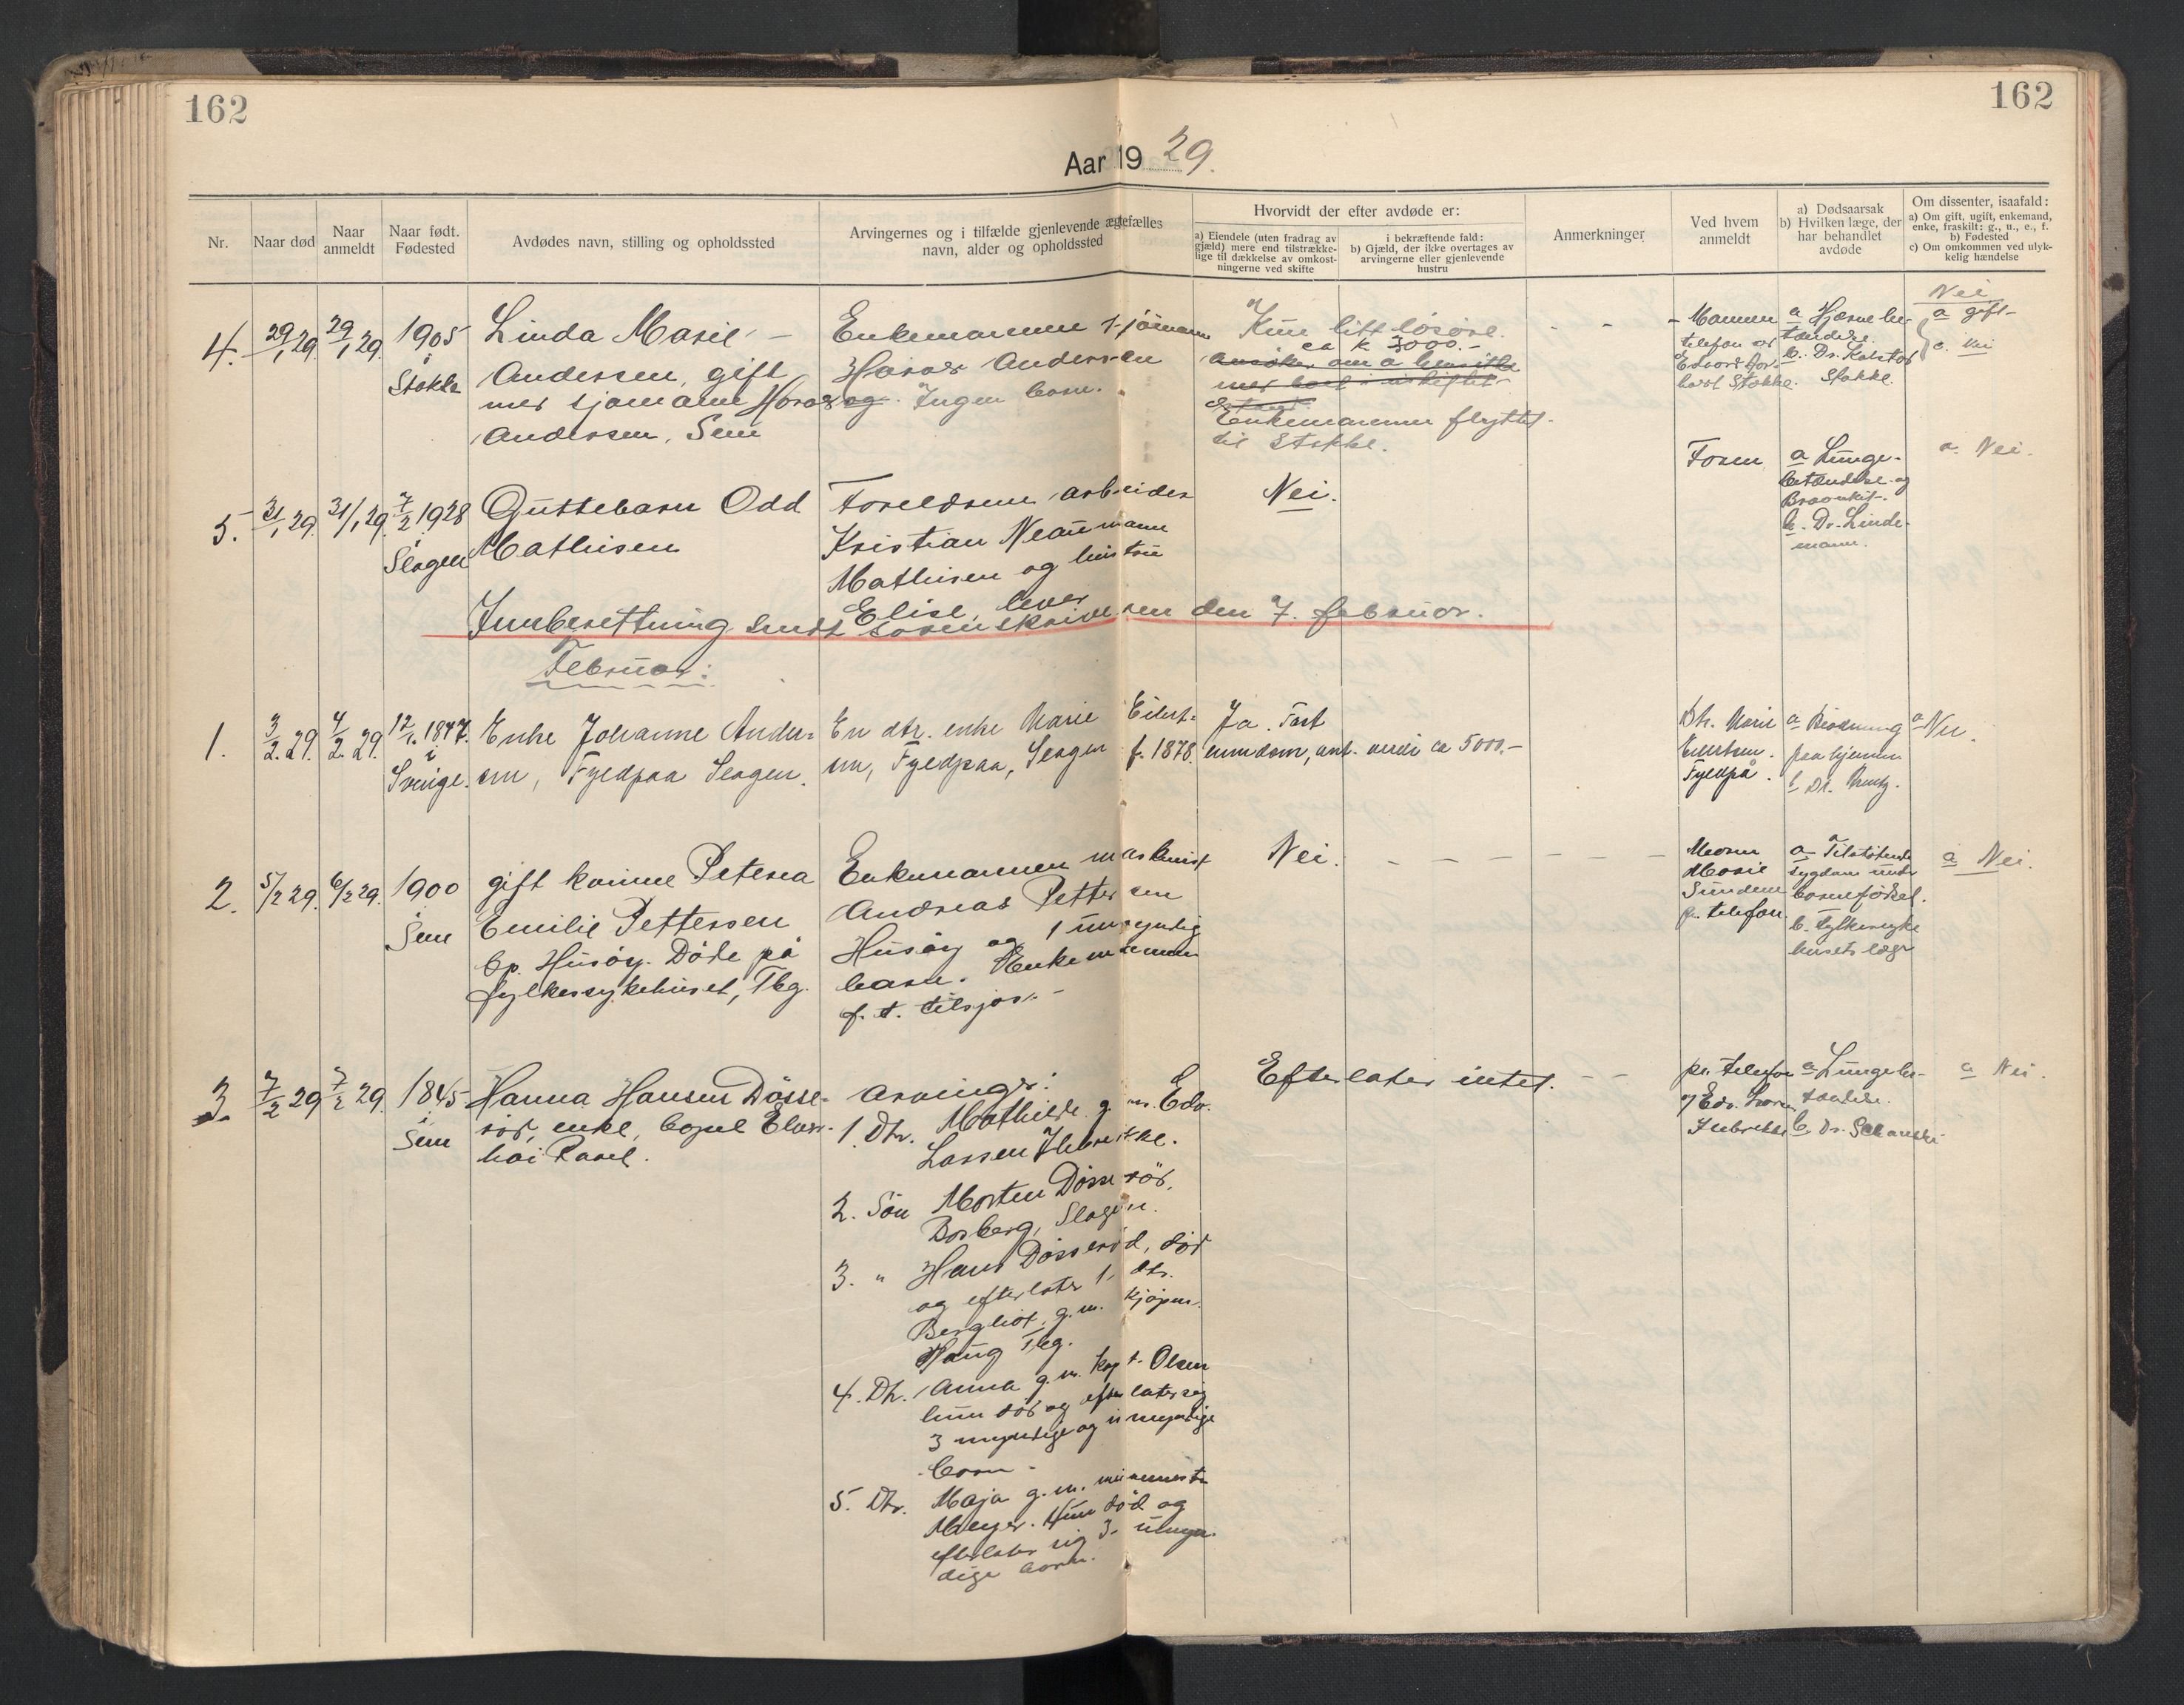 162
162
Aar 1929.
Nr.
Naar død
Naar anmeldt
Naar født. Fødested
Avdødes navn, stilling og opholdssted
Arvingernes og i tilfælde gjenlevende ægtefælles
navn, alder og opholdssted
Hvorvidt der efter avdøde er:
a) Eiendele (uten fradrag av
gjæld) mere end tilstrække-
lige til dækkelse av omkost-
ningerne ved skifte
i bekræftende fald:
b) Gjæld, der ikke overtages av
arvingerne eller gjenlevende
hustru
Anmerkninger
Ved hvem
anmeldt
a) Dødsaarsak
b) Hvilken læge, der
har behandlet
avdøde
Om dissenter, isaafald:
a) Om gift, ugift, enkemand,
enke, fraskilt: g., u., e., f.
b) Fødested
c) Om omkommen ved ulyk-
kelig hændelse
4. 29/1 29. 29/1 29. 1905
i
Stokke
Linda Marie
Andersen, gift
med sjømann
Andersen, Sem
Enkemannen sjømann
Andersen
og Ingen barn.
Kun litt løsøre.
ca k 3000.-
Enkemannen flyttet
til Stokke.
Mannen
telefon
Stokke.
a Hjernebe-
tendelse.
b. Dr.
Stokke.
Nei
a gift-
c. Nei
5. 31/1 29. 31/1 29. 7/2 1928
Slagen
Guttebarn Odd
Mathisen
Foreldrene arbeider
Kristian Neumann
Mathisen og hustru
Elise, lever
Nei.
Faren
a Lunge-
betændelse og
Bronkit.
b. Dr. Linde-
mann.
a. Nei.
Innberettning sendt sorenskriveren den 7. februar.
Februar:
1. 3/2. 29. 4/2. 29. 12/1. 1847.
i
Sverige.
Enke Johanne Ander-
sen, Fyldpaa Slagen.
En dtr. enke Marie Eilert-
sen, Fyldpaa, Slagen f. 1878.
Ja. Fast
eiendom, ant. verdi ca 5000.-
Dtr. Marie
Eilertsen.
Fyldpå.
a
paa hjernen
b Dr.
a Nei.
2. 5/2 29. 6/2 29. 1900
Sem
gift kvinne Petrea
Emilie Pettersen
bp. Husøy. Døde på
fylkessykehuset, Tbg.
Enkemannen maskinist
Andreas Pettersen
Husøy og 1 umyndig
barn. Enkemannen
f. t. tilsjøs.-
Nei.
Moren
Marie
Sundene
pr. telefon.
a Tilstøtende
sygdom under
barnefødsel.
b. fylkessyke
husets læge
a Nei.
3. 7/2 29 7/2 29. 1845
i
Sem
Hanna Hansen Døsse-
rød, enke, bopæl
Ravel.
Arvinger:
1. Dtr. Mathilde g. m. Edv.
Larsen
2. Søn Morten Døsserød,
Slagen.
3. " Hans Døsserød, død
og efterlater 1 dtr.
Bergliot, g.m. kjøpm.
Haug Tbg.
4. Dtr. Anna g. m. kapt. Olsen
hun død og efterlater sig
3 myndige og umyndige
barn.-
5. Dtr. Maja g. m.
Meyer. Hun død og
efterlater sig 3 umyn-
dige barn.
Efterlater intet.
pr. telefon
a Lungebe-
tendelse.
b. Dr.
a Nei.